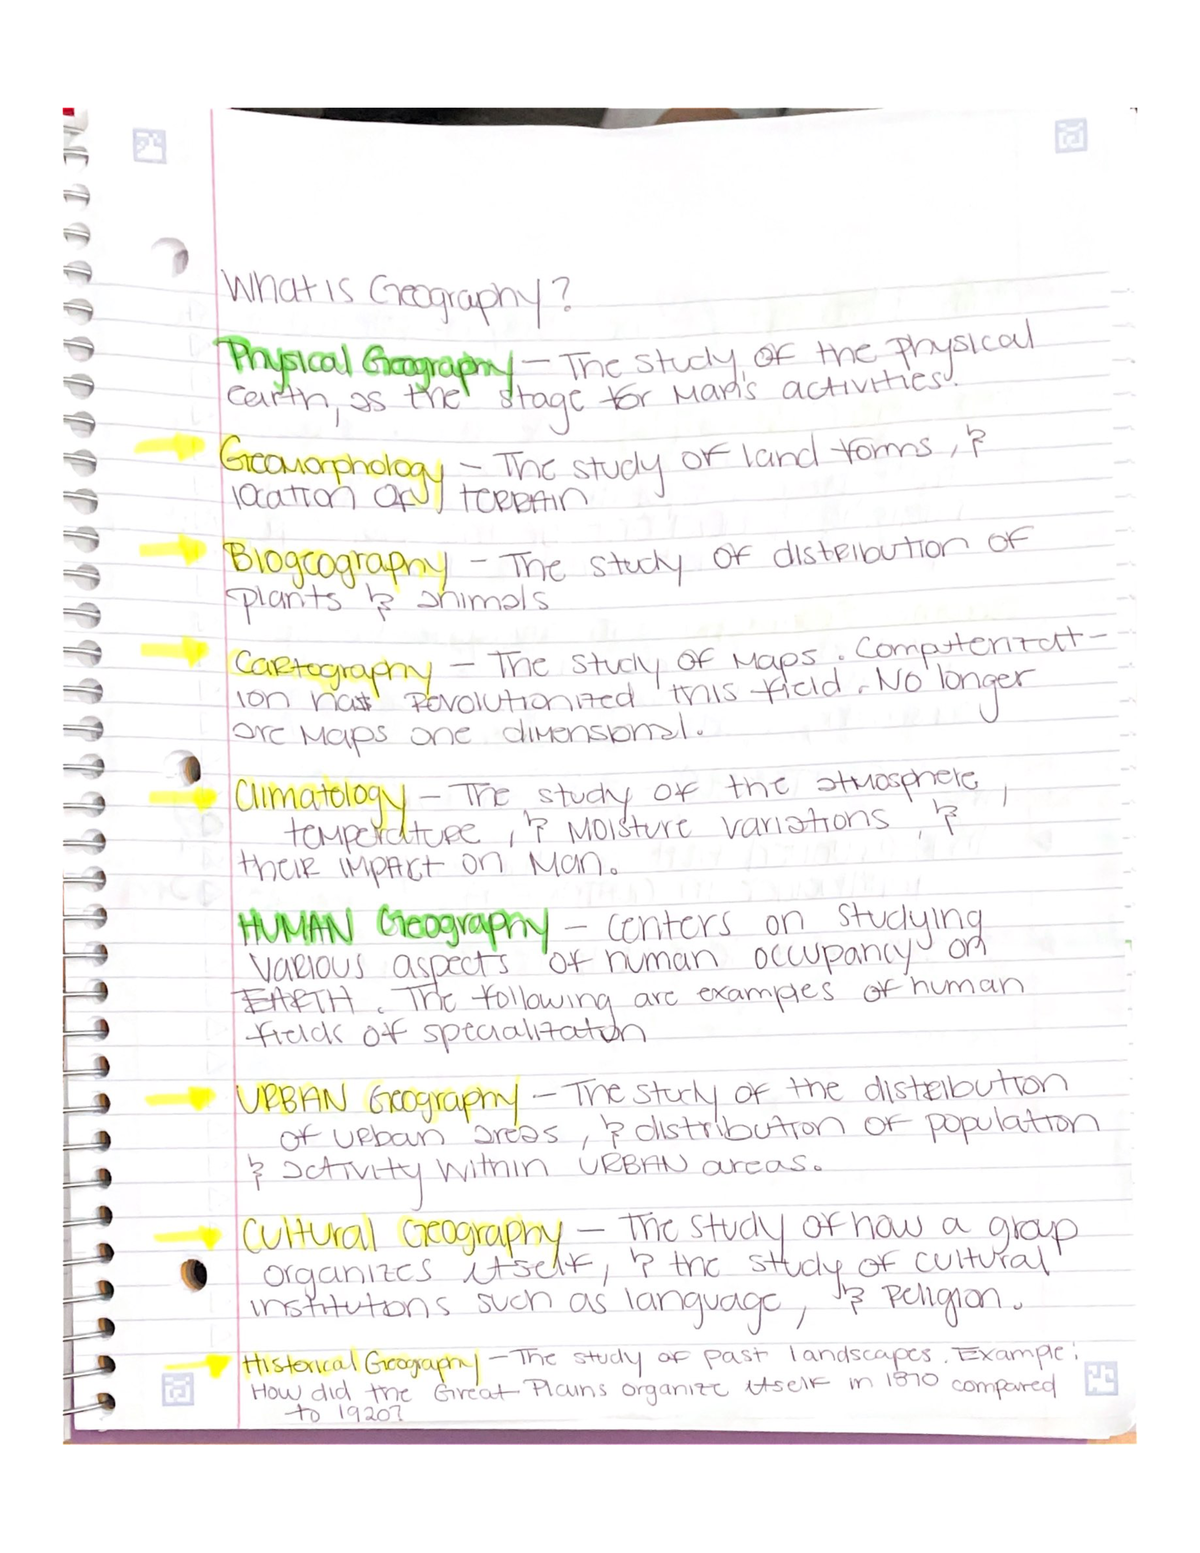 What is Geography?
Physical Geography – The study of the physical
earth, as the stage for Man's activities.
Geomorphology – The study of land forms, &
location of terrain
Biogeography – The study of distribution of
plants & animals
Cartography – The study of maps. Computerizat-
ion has revolutionized this field. No longer
are maps one dimensional.
Climatology – The study of the atmosphere,
temperature, & moisture variations, &
their impact on Man.
HUMAN Geography – centers on studying
various aspects of human occupancy on
EARTH. The following are examples of human
fields of specializaton
URBAN Geography – The study of the distribution
of urban areas, & distribution of population
& activity within URBAN areas.
Cultural Geography – The study of how a group
organizes itself, & the study of cultural
institutions such as language, & religion.
Historical Geography – The study of past landscapes. Example:
How did the Great Plains organize itself in 1870 compared
to 1920?